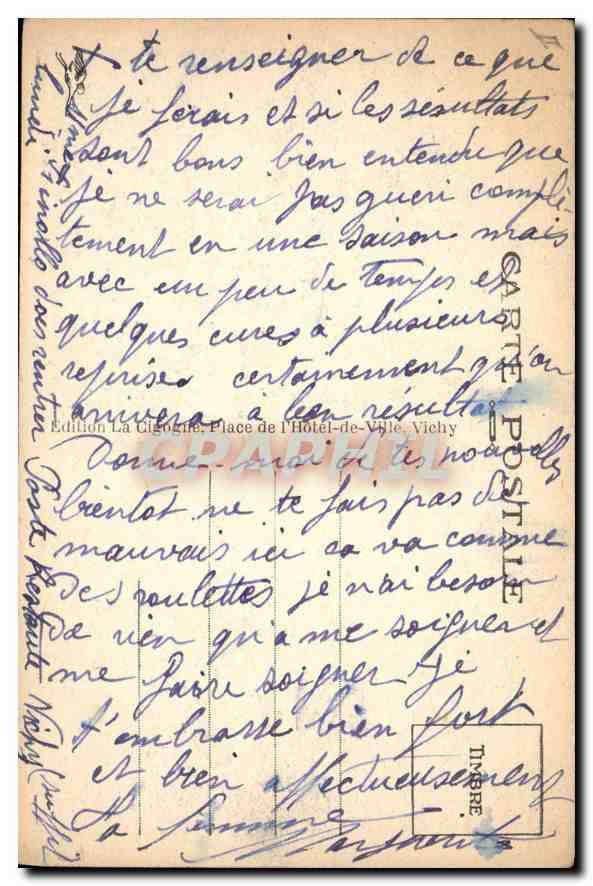 te renseigner de ce que
je ferais et si les résultats
sont bons bien entendu que
je ne serai pas gueri complè-
tement en une saison mais
avec un peu de temps et
quelques cures à plusieurs
reprises certainement qu'on
arrivera à bon résultat
Edition La Cigogne, Place de l'Hôtel-de-Ville, Vichy
Donne-moi de tes nouvelles
bientot ne te fais pas de
mauvais ici ca va comme
des roulettes je n'ai besoin
de rien qu'a me soigner et
me faire soigner Je
t'embrasse bien fort
et bien affectueusement
Ta femme
Marguerite
CARTE POSTALE
TIMBRE
CPAPHIL
lundi rentrer Poste Restante Vichy